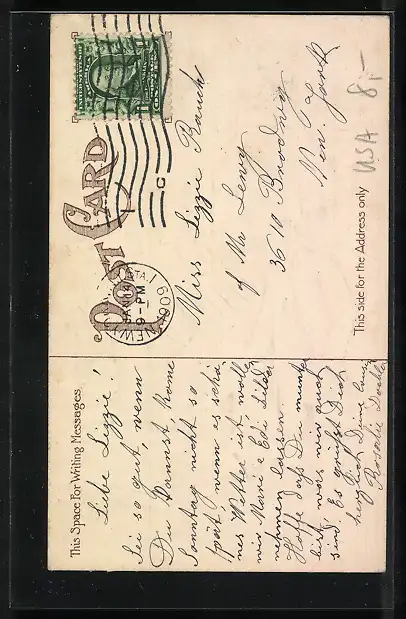 This Space For Writing Messages
Liebe Lizzie!
Sei so gut, wenn
Du kannst kome
Sonntag nicht so
spät, wenn es schö-
nes Wetter ist, woll
wir Marie e Edi Bilder
nehmen lassen.
Hoffe daß Du munter
bist was wir auch
sind. Es grüßt Dich
herzlich Deine
Rosalie
POST CARD
UNITED STATES OF AMERICA
NEW YORK, STA
9-PM
1909
C
Miss Lizzie Rauch
of Mr Levy
3610 Broadway
New York
This side for the Address only
USA 8,-